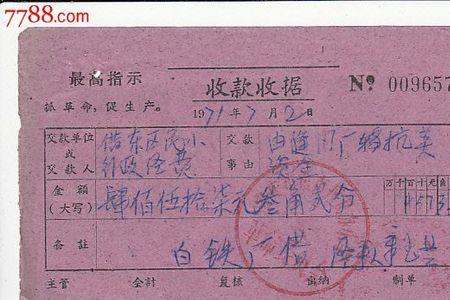 7788.com
最高指示
抓革命，促生产。
收款收据
No 009657
1971年7月2日
交款单位
或
交款人
借东区民小
行政经费
交款
事由
由缝
厂
抗美
资金
金额
(大写)
肆佰伍拾柒元叁角贰分
万千百十元角
备注
白铁厂借
主管 会计 复核 出纳 制单